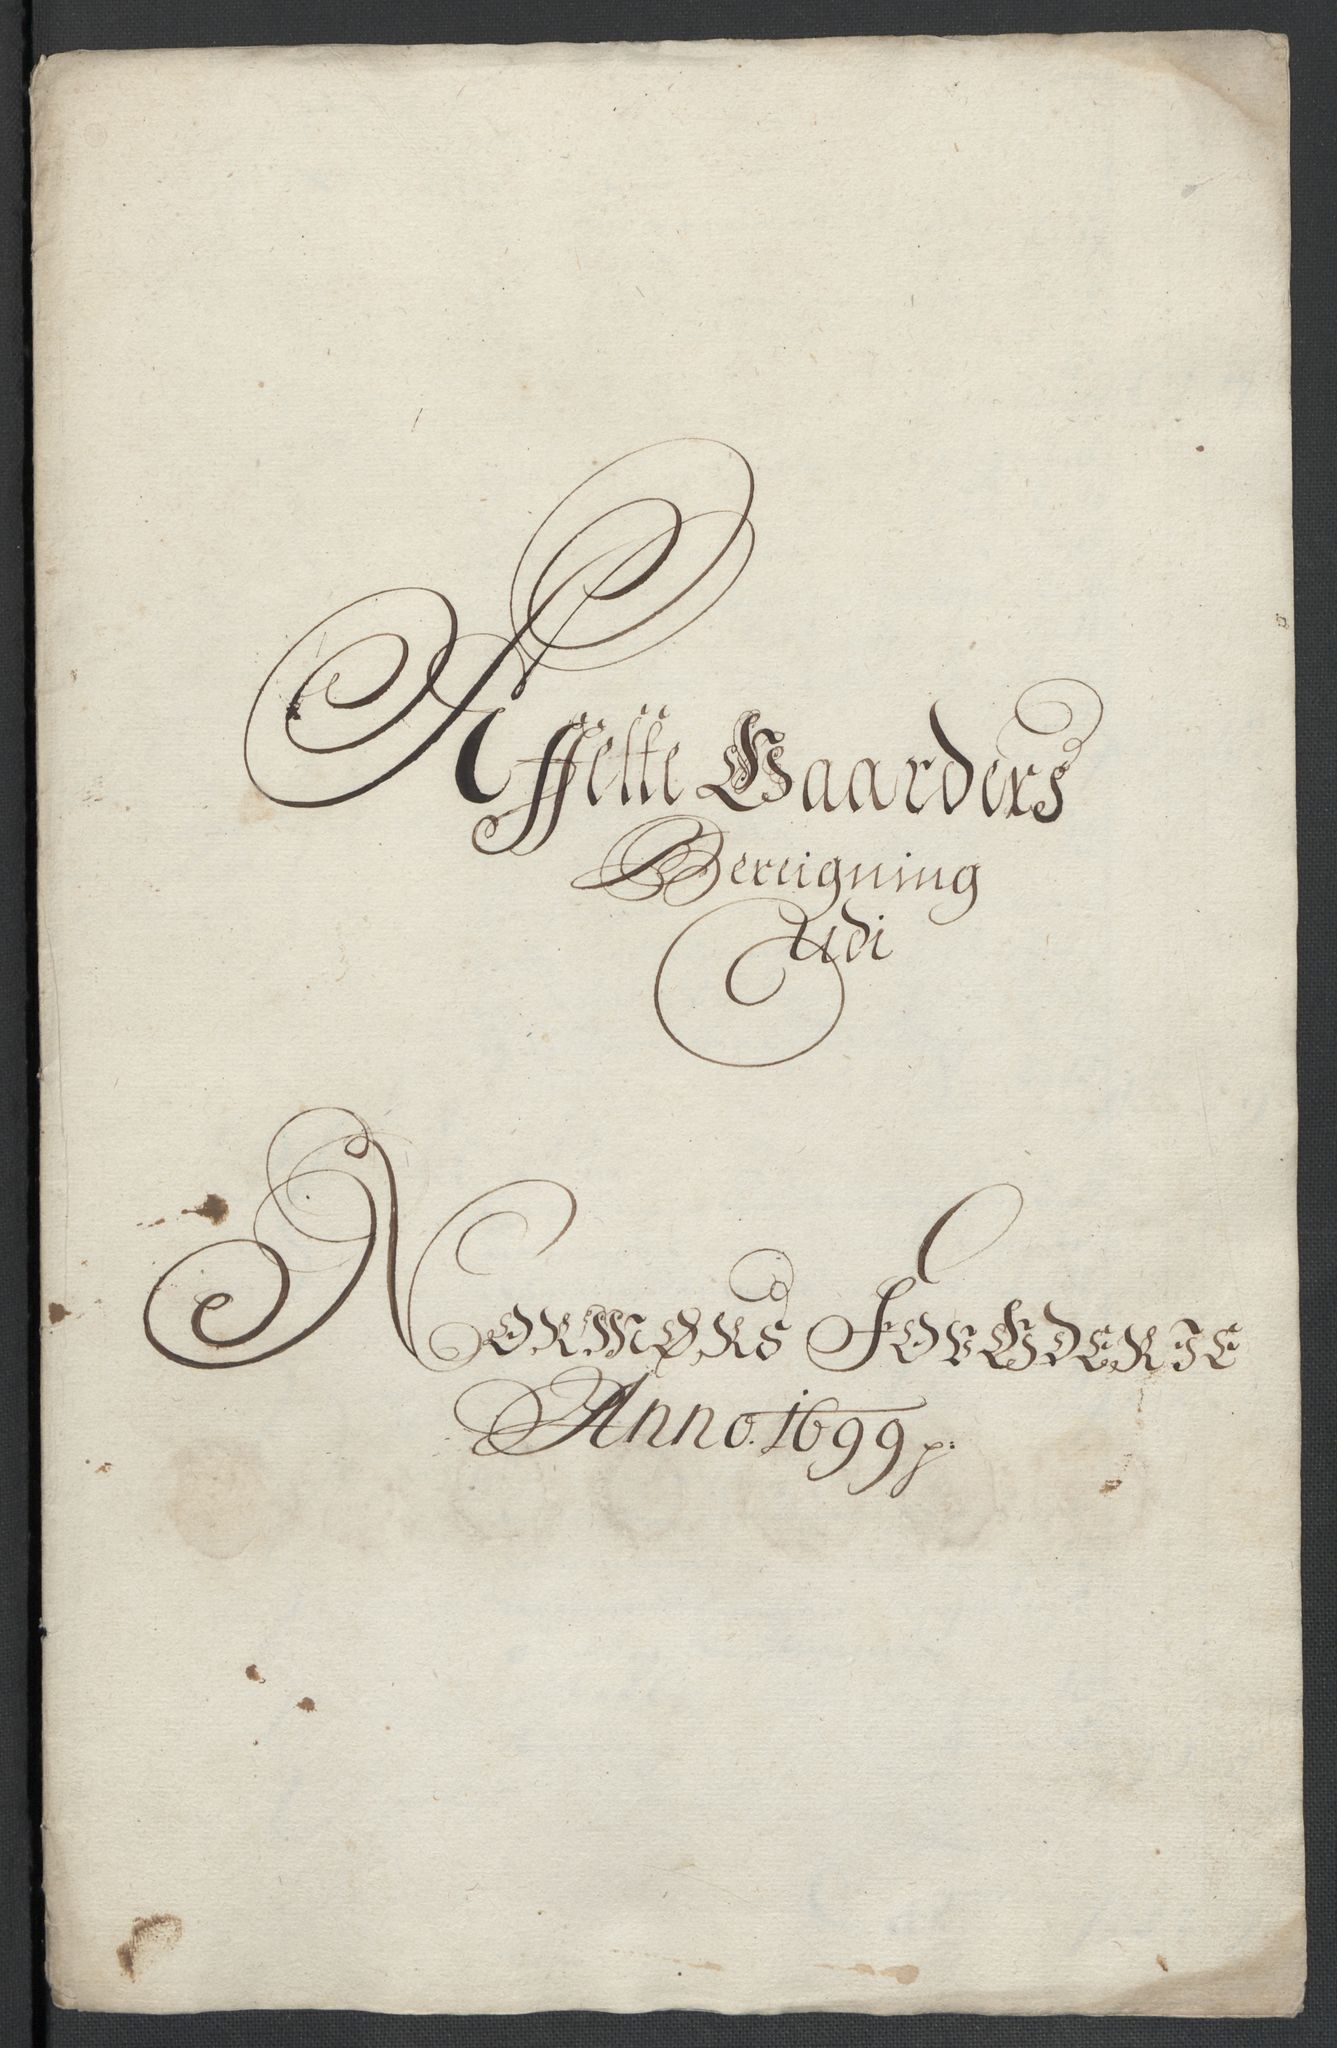 Affelte Gaarders
Bereigning
Udi
NORMØRS FOVGDERIE
Anno. 1699 p: